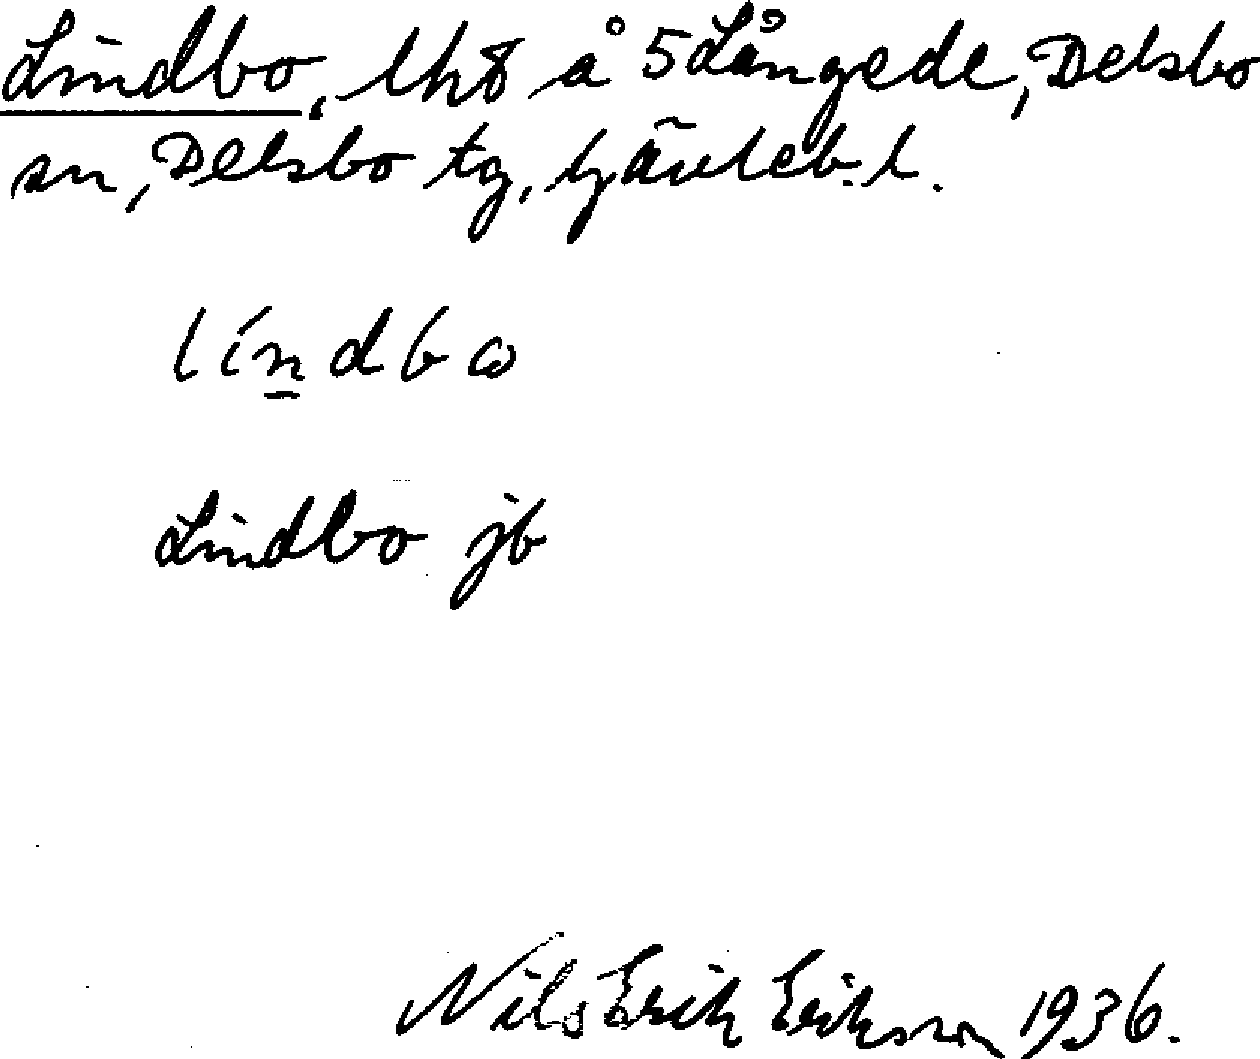 Lindbo, lht å 5 Långede, Delsbo
sn, Delsbo tg, Gävleb. l.
líndbω
Lindbo jb
Nils Erik Eriksson 1936.